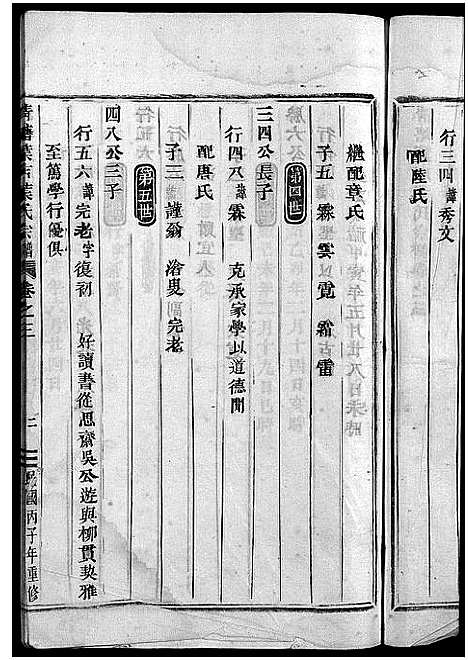 行三四諱秀文
配陸氏
繼配章氏
子五 霖 雲 以寛 霜 古雷
第四世
三四公長子
行四八諱霖 克承家學以道德聞
配唐氏
子三 謹翁 完老
第五世
四八公三子
行五六諱完老字復初 好讀書從思齋吳公遊與柳貫契雅
至篤學行優俱
葉氏宗譜 卷之三 三 民國丙子年重修